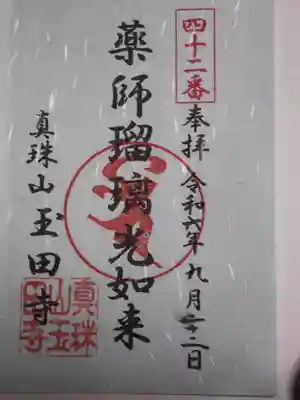 四十二番
奉拝 令和六年九月二十二日
薬師瑠璃光如来
真珠山玉田寺
真珠
山玉
田寺